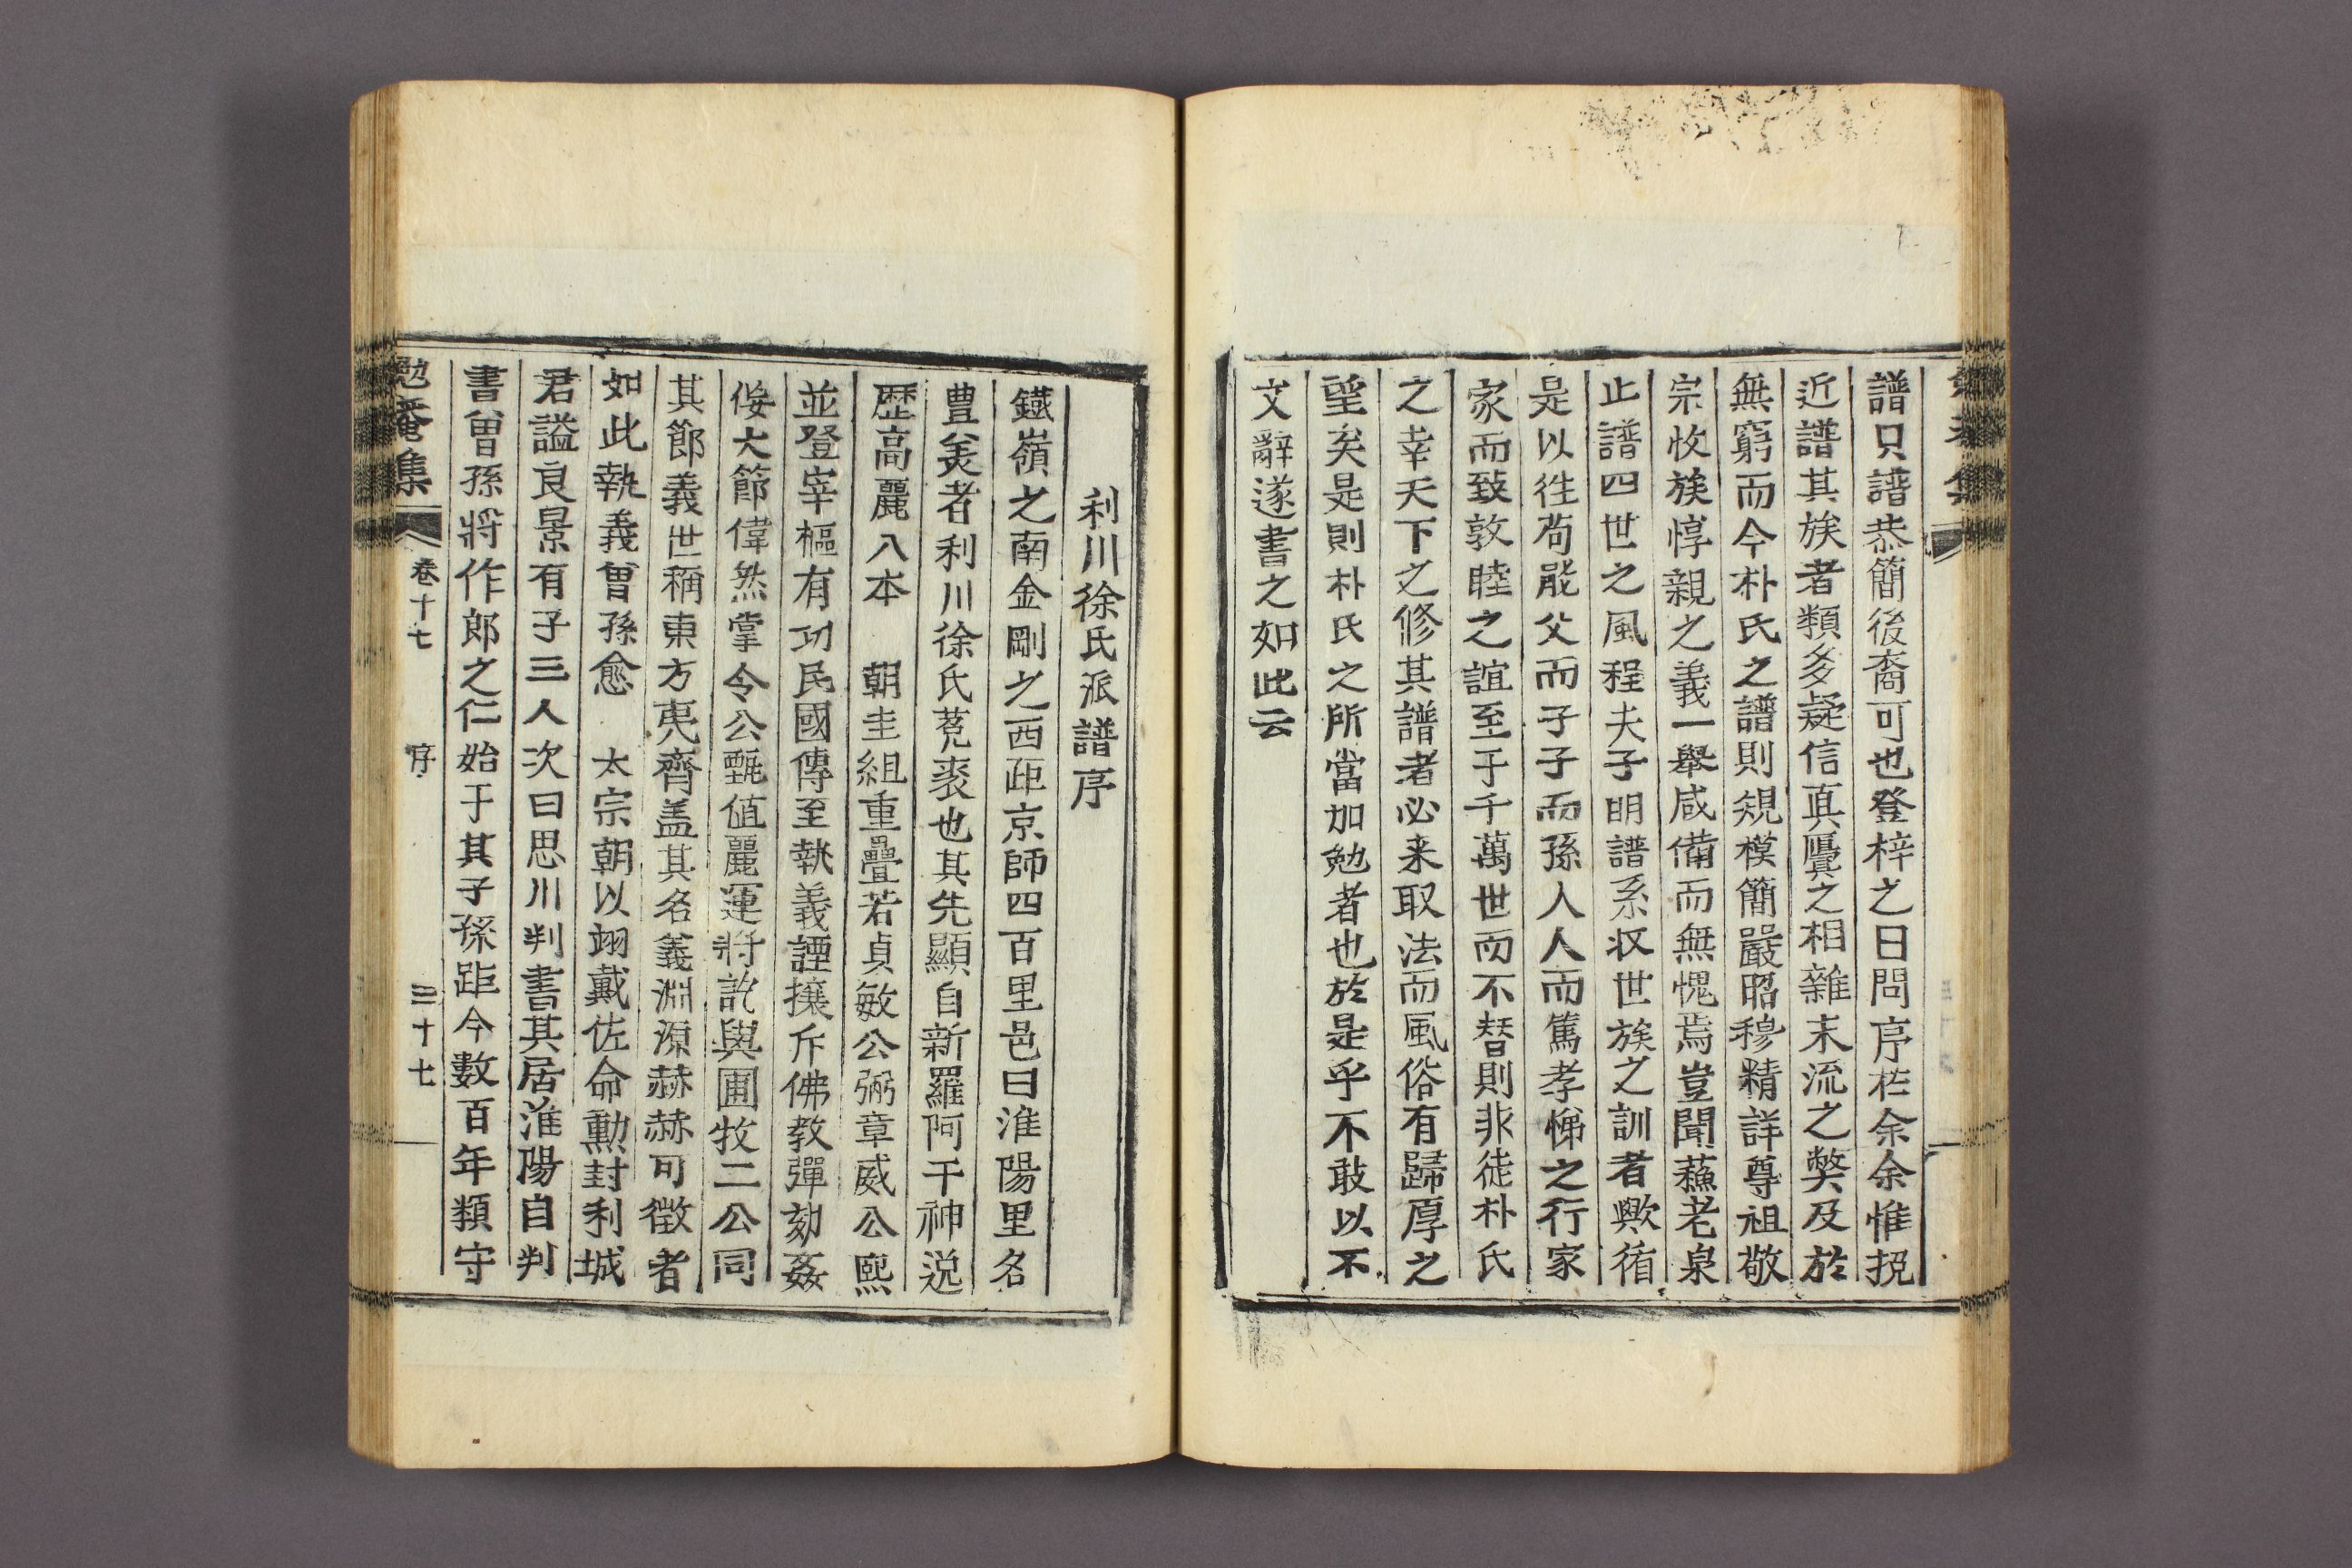 譜只譜恭簡後裔可也登梓之日問序於余余惟挽
近譜其族者類多疑信眞贋之相雜末流之獘及於
無窮而今朴氏之譜則䂓模簡嚴昭穆精詳尊祖敬
宗收族惇親之義一擧咸備而無愧焉豈聞蘓老泉
止譜四世之風程夫子明譜系收世族之訓者歟循
是以徃苟能父而子子而孫人人而篤孝悌之行家
家而致敦睦之誼至于千萬世而不替則非徒朴氏
之幸天下之修其譜者必來取法而風俗有歸厚之
望矣是則朴氏之所當加勉者也於是乎不敢以不
文辭遂書之如此云
利川徐氏派譜序
鐵嶺之南金剛之西距京師四百里邑曰淮陽里名
豊美者利川徐氏菟裘也其先顯自新羅阿干神逸
歷高麗八本 朝圭組重疊若貞敏公弼章威公熙
並登宰樞有功民國傳至執義諲攘斥佛敎彈劾姦
佞大節偉然掌令公甄値麗運將訖與圃牧二公同
其節義世稱東方夷齊盖其名義淵源赫赫可徵者
如此執義曾孫愈 太宗朝以翊戴佐命勳封利城
君謚良景有子三人次曰思川判書其居淮陽自判
書曾孫將作郎之仁始于其子孫距今數百年類守
勉庵集 卷十七 序 三十七